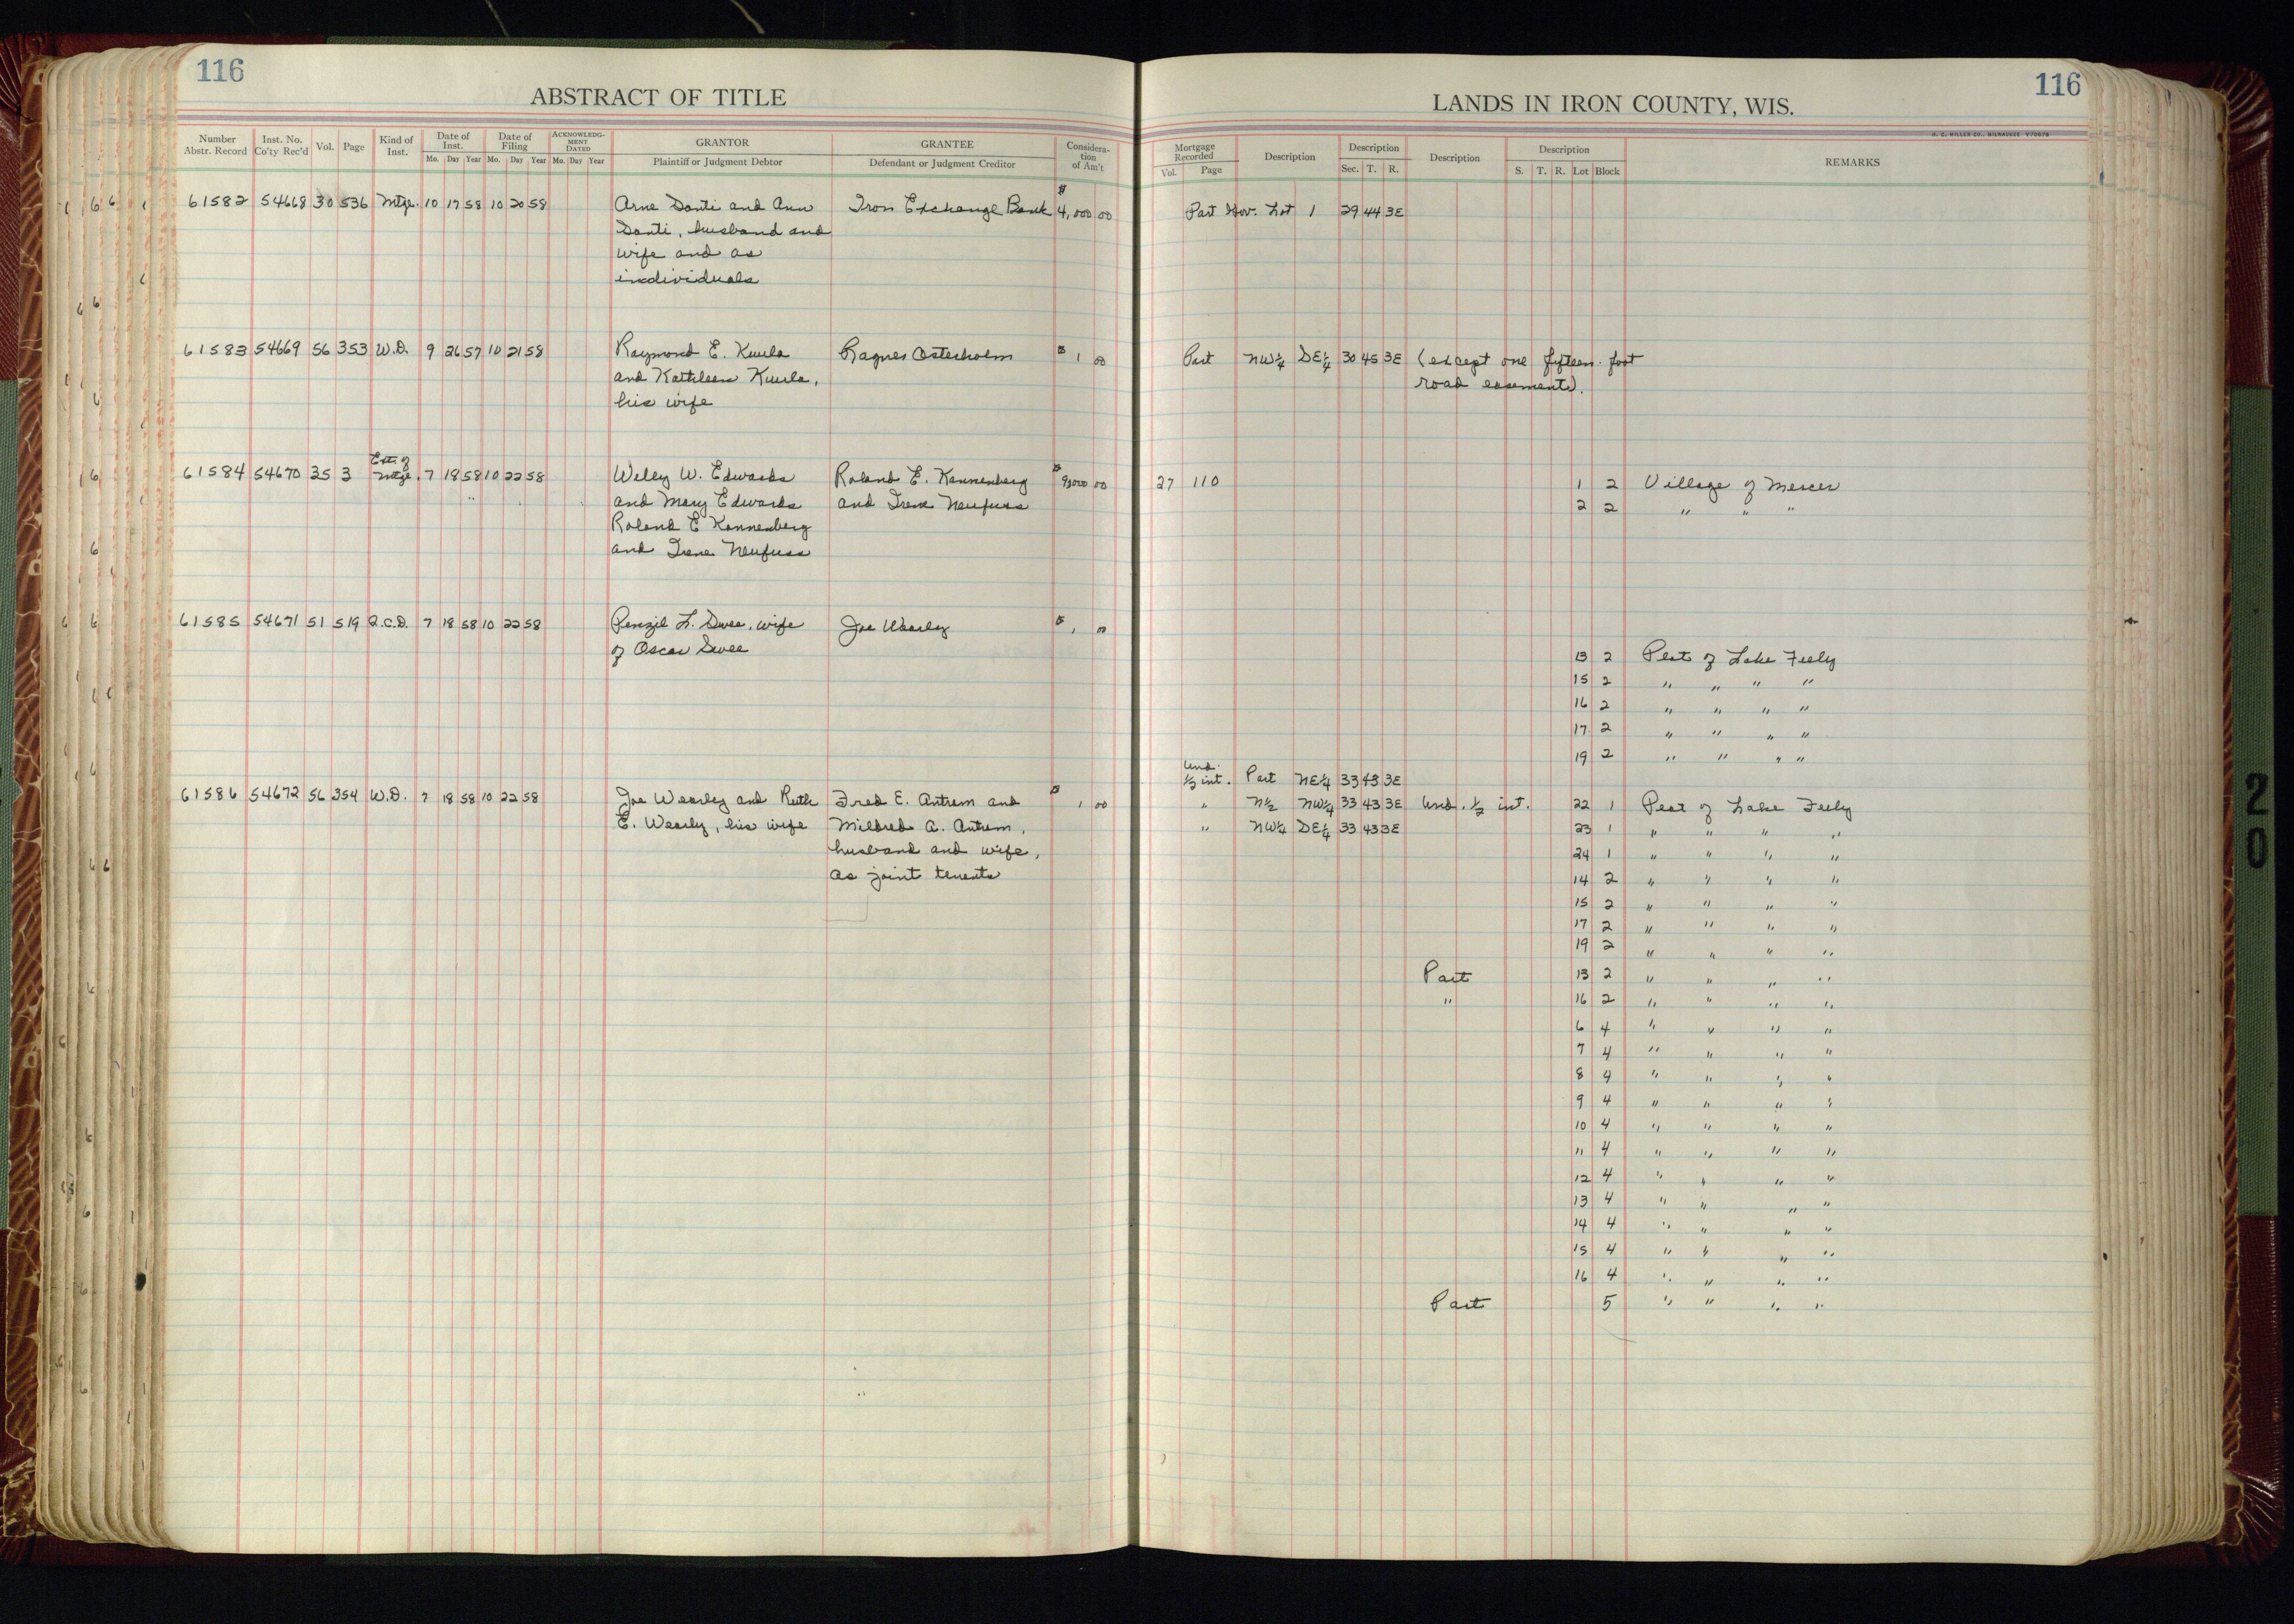 116
ABSTRACT OF TITLE
Number Abstr. Record Inst. No. Co'ty Rec'd Vol. Page Kind of Inst. Date of Inst. Date of Filing ACKNOWLEDGMENT DATED GRANTOR GRANTEE Consideration of Am't
Mo. Day Year Mo. Day Year Mo. Day Year Plaintiff or Judgment Debtor Defendant or Judgment Creditor
61582 54668 30 536 Mtge. 10 17 58 10 20 58 Arne Santi and Ann Iron Exchange Bank $4,000 00
Santi, husband and
wife and as
individuals
61583 54669 56 353 W.D. 9 26 57 10 21 58 Raymond E. Kuula Ragner Osterholm $1 00
and Kathleen Kuula,
his wife
Ext. of
61584 54670 35 3 Mtge. 7 18 58 10 22 58 W. Edwards Roland E. Kannenberg $9,000 00
and Mary Edwards and Irene Neufuss
Roland E Kannenberg
and Irene Neufuss
61585 54671 51 519 Q.C.D. 7 18 58 10 22 58 L. Swee, wife Joe Wearly $1 00
of Oscar Swee
61586 54672 56 354 W.D. 7 18 58 10 22 58 Joe Wearly and Ruth Fred E. Antrem and $1 00
E. Wearly, his wife Mildred A. Antrem,
husband and wife,
as joint tenents
116
LANDS IN IRON COUNTY, WIS.
H. C. MILLER CO., MILWAUKEE
Mortgage Recorded Description Description Description Description REMARKS
Vol. Page Sec. T. R. S. T. R. Lot Block
Part Gov. Lot 1 29 44 3E
Part NW¼ SE¼ 30 45 3E (except one fifteen foot
road easement).
27 110 1 2 Village of Mercer
2 2 " " "
13 2 Plat of Lake Feely
15 2 " " " "
16 2 " " " "
17 2 " " " "
19 2 " " " "
Und.
½ int. Part NE¼ 33 43 3E
" N½ NW¼ 33 43 3E Und. ½ int. 22 1 Plat of Lake Feely
" NW¼ SE¼ 33 43 3E 23 1 " " " "
24 1 " " " "
14 2 " " " "
15 2 " " " "
17 2 " " " "
19 2 " " " "
Part 13 2 " " " "
" 16 2 " " " "
6 4 " " " "
7 4 " " " "
8 4 " " " "
9 4 " " " "
10 4 " " " "
11 4 " " " "
12 4 " " " "
13 4 " " " "
14 4 " " " "
15 4 " " " "
16 4 " " " "
Part 5 " " " "
20